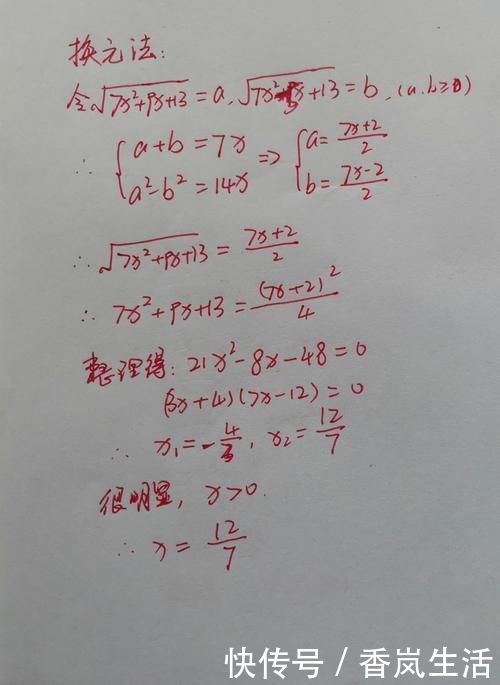 换元法:
令√(7x²+9x+13) = a, √(7x²-5x+13) = b, (a,b≥0)
∴ { a+b=7x ⇒ { a=(7x+2)/2
a²-b²=14x b=(7x-2)/2
∴ √(7x²+9x+13) = (7x+2)/2
∴ 7x²+9x+13 = (7x+2)²/4
整理得: 21x²-8x-48=0
(3x+4)(7x-12)=0
∴ x₁=-4/3, x₂=12/7
很明显, x>0.
∴ x=12/7
快传号 / 香岚生活